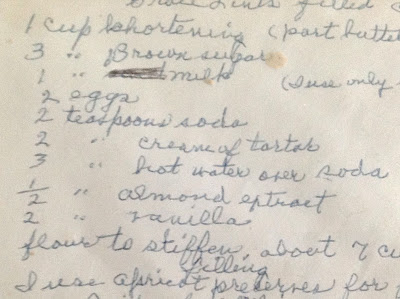 filled
1 cup shortening (part butter
3 " Brown sugar
1 " milk (I use only
2 eggs
2 teaspoons soda
2 " cream of tartar
3 " hot water over soda
1/2 " almond extract
2 " vanilla
flour to stiffen, about 7 cu
filling
I use apricot preserves for